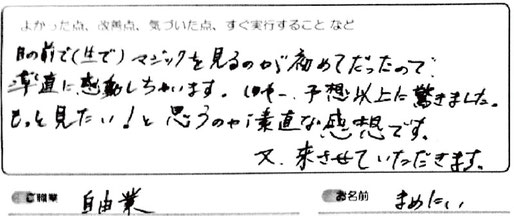 よかった点、改善点、気づいた点、すぐ実行すること など
目の前で(生で)マジックを見るのが初めてだったので
率直に感動しちゃいます。 予想以上に驚きました。
もっと見たい！と思うのが素直な感想です。
又、来させていただきます。
ご職業 自由業 お名前 まめにい